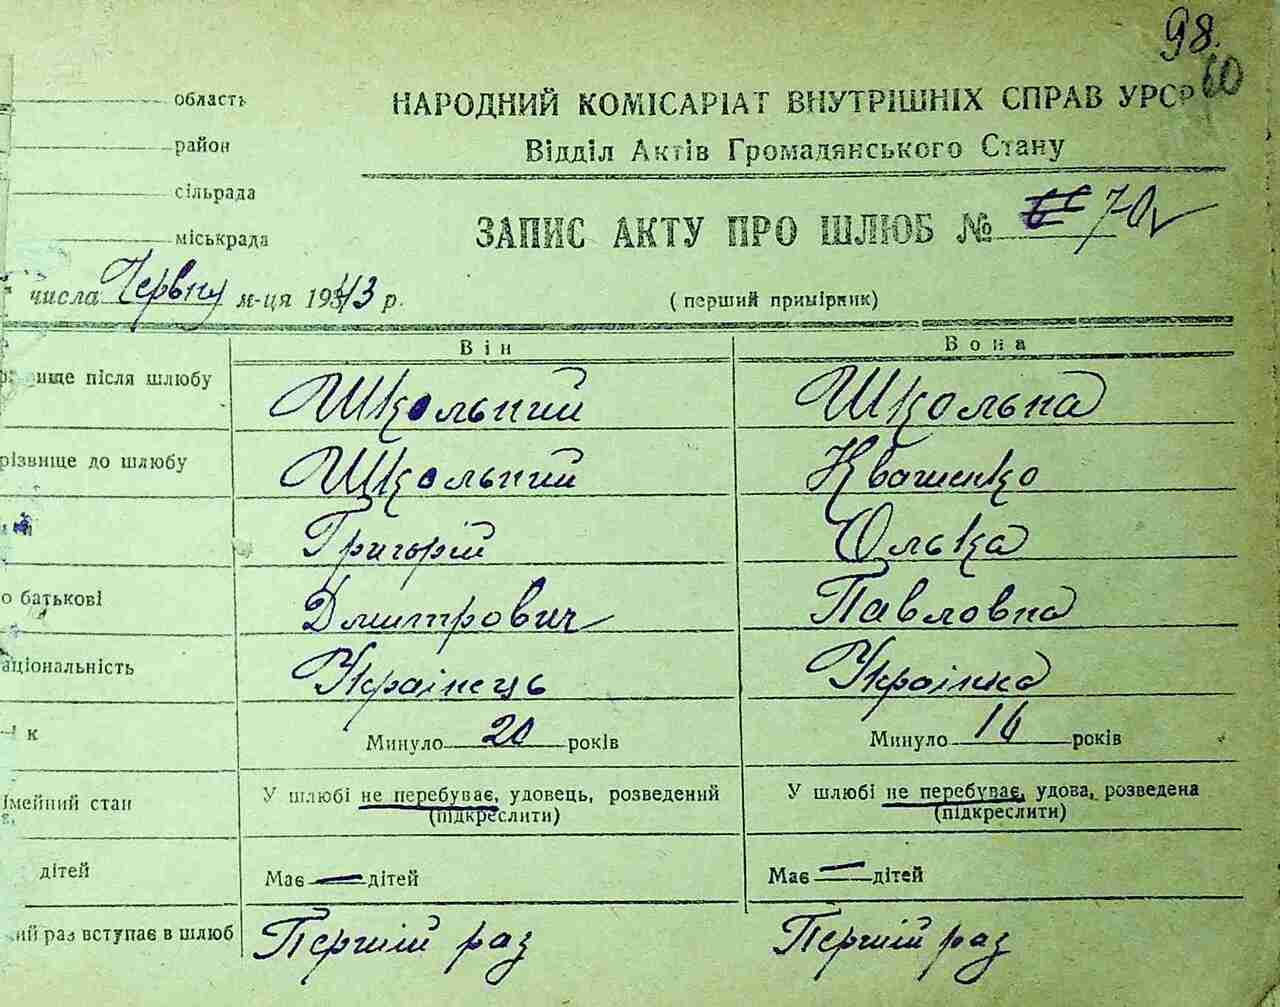 98.
60
область
район
сільрада
міськрада
НАРОДНИЙ КОМІСАРІАТ ВНУТРІШНІХ СПРАВ УРСР
Відділ Актів Громадянського Стану
ЗАПИС АКТУ ПРО ШЛЮБ № 70
числа Червня м-ця 1943 р.
(перший примірник)
Він Вона
ище після шлюбу Школьний Школьна
різвище до шлюбу Школьний Квашенко
Григорій Олька
о батькові Дмитрович Павловна
аціональність Украінець Украінка
к Минуло 20 років Минуло 16 років
імейний стан У шлюбі не перебуває, удовець, розведений У шлюбі не перебуває, удова, розведена
(підкреслити) (підкреслити)
дітей Має — дітей Має — дітей
ий раз вступає в шлюб Першій раз Першій раз